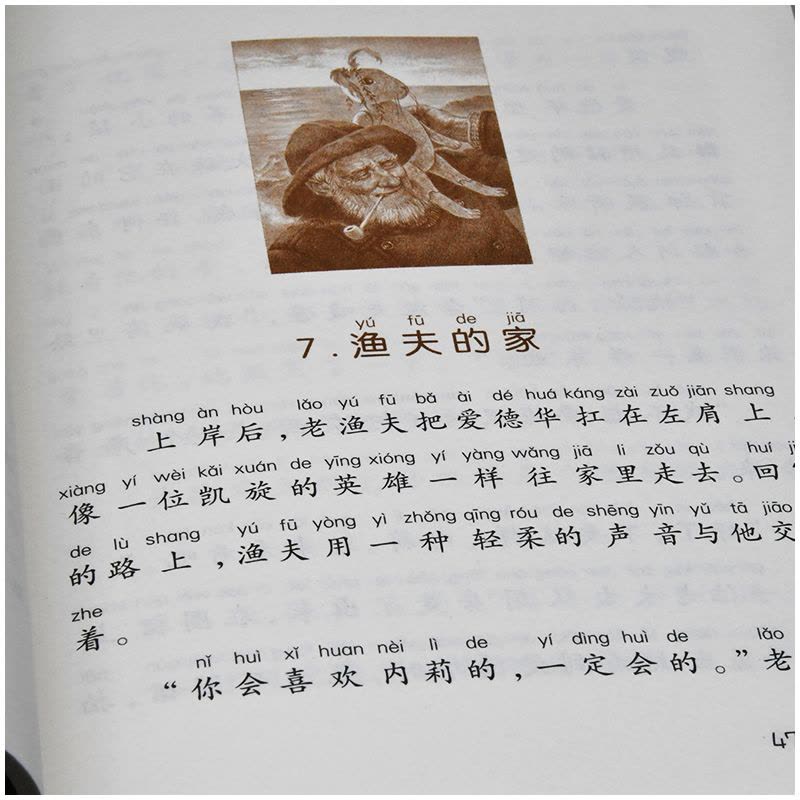 yú fū de jiā
7.渔夫的家
shàng àn hòu lǎo yú fū bǎ ài dé huá káng zài zuǒ jiān shang
上岸后,老渔夫把爱德华扛在左肩上
xiàng yí wèi kǎi xuán de yīng xióng yí yàng wǎng jiā li zǒu qù huí
像一位凯旋的英雄一样往家里走去。回
de lù shang yú fū yòng yì zhǒng qīng róu de shēng yīn yǔ tā jiāo
的路上,渔夫用一种轻柔的声音与他交
zhe
着。
nǐ huì xǐ huan nèi lì de yí dìng huì de lǎo
“你会喜欢内莉的,一定会的。”老